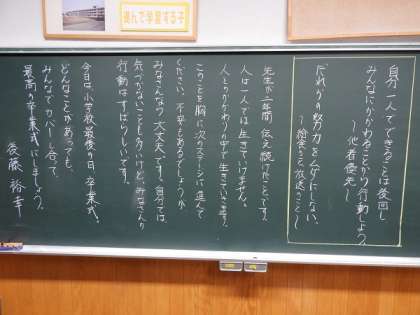 進んで学習する子
自分一人でできることは後回し
みんなにかかわることから行動しよう
〜他者優先〜
だれかの努力をムダにしない、
〜給食、放送のこと〜
先生が二年間伝え続けたことです。
人は一人では生きていけません。
人とのかかわりの中で生きていきます。
このことを胸に次のステージに進んで
ください。不安もあるでしょうが
みなさんなら大丈夫です。自分では
気づかないことも多いけど、みなさんの
行動はすばらしいです。
今日は小学校最後の日、卒業式。
どんなことがあっても、
みんなでカバーし合って、
最高の卒業式にしましょう。
後藤裕幸